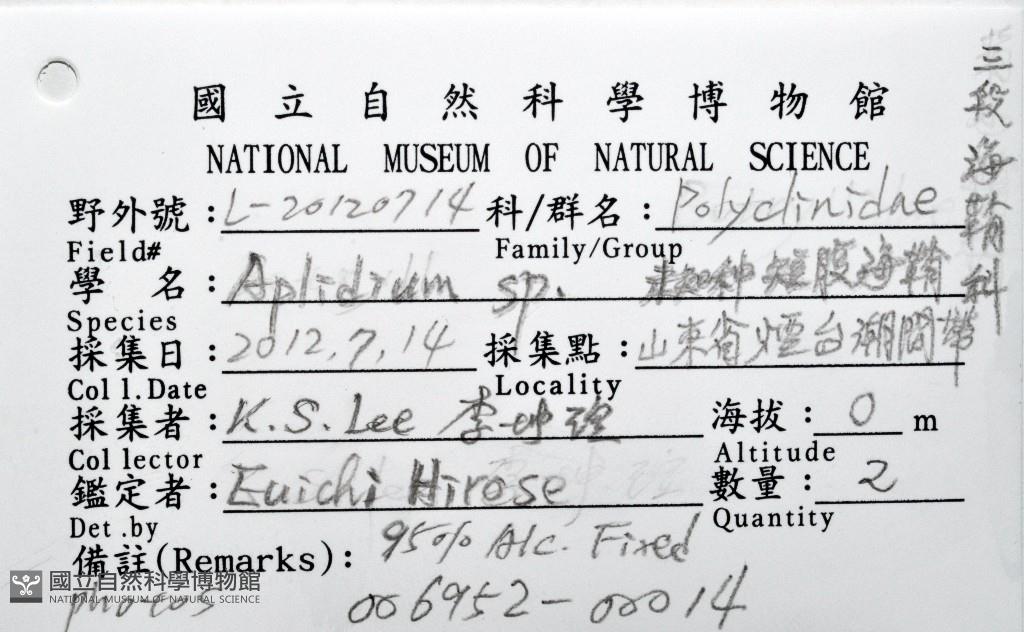 國立自然科學博物館
NATIONAL MUSEUM OF NATURAL SCIENCE
三段海鞘科
野外號:L-20120714 科/群名:Polyclinidae
Field# Family/Group
學 名:Aplidium sp. 未知種短腹海鞘
Species
採集日:2012,7,14 採集點:山東省煙台潮間帶
Coll.Date Locality
採集者:K.S.Lee 李坤瑄 海拔:0 m
Collector Altitude
鑑定者:Euichi Hirose 數量:2
Det.by Quantity
備註(Remarks): 95% Alc. Fixed
photos 006952-00014
國立自然科學博物館
NATIONAL MUSEUM OF NATURAL SCIENCE